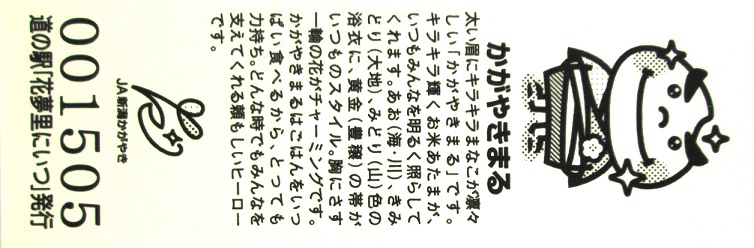 かがやきまる
太い眉にキラキラまなこが凛々
しい「かがやきまる」です。
キラキラ輝くお米あたまが、
いつもみんなを明るく照らして
くれます。あお(海・川)、きみ
どり(大地)、みどり(山)色の
浴衣に、黄金(豊穣)の帯が
いつものスタイル。胸にさす
一輪の花がチャーミングです。
かがやきまるはごはんをいっ
ぱい食べるから、とっても
力持ち。どんな時でもみんなを
支えてくれる頼もしいヒーロー
です。
JA新潟かがやき
001505
道の駅「花夢里にいつ」発行